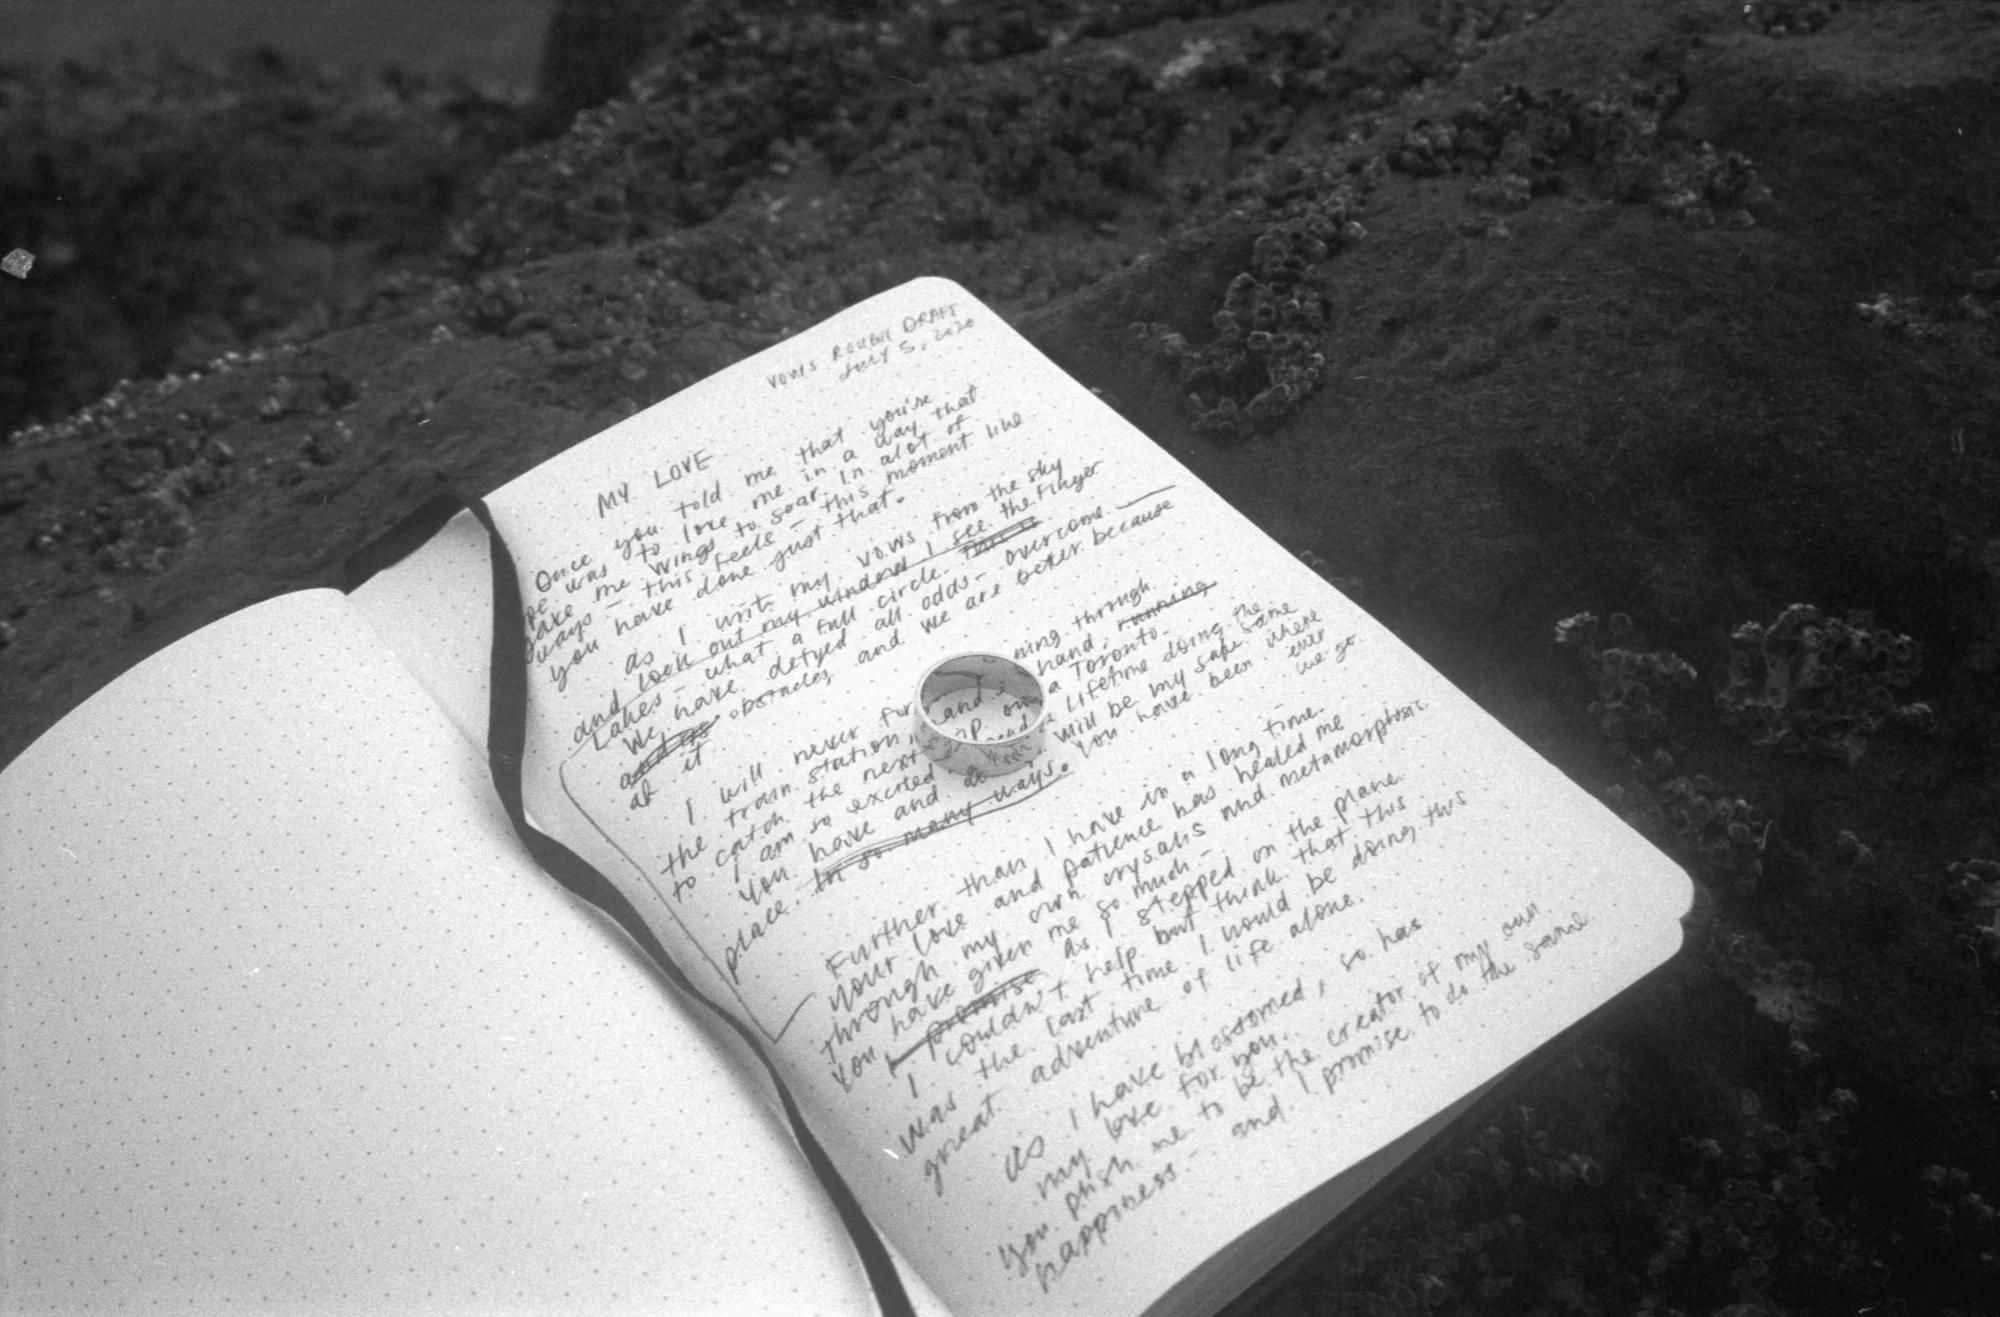 VOWS ROUGH DRAFT
July 5, 2020
MY LOVE
Once you told me that you're
was to love me in a way that
gave me wings to soar. In alot of
ways - this feels - this moment like
you have done just that.
as I write my vows from the sky
and look out my window I see the Finger
Lakes - what a full circle. This is
We have defyed all odds - overcome
obstacles, and we are better because
of it
I will never ning through
the train station, hand, running
to catch the next a Toronto
I am so excited lifetime doing the
You will be my safe same
have and you have been where
place. In so many ways. ever
we go.
Further than I have in a long time.
your love and patience has healed me
through my own crysalis and metamorphosis.
You have given me so much -
I promise as I stepped on the plane
I couldn't help but think that this
was the last time I would be doing this
great adventure of life alone.
As I have blossomed, so has
my love for you.
you push me to be the creator of my own
happiness - and I promise to do the same